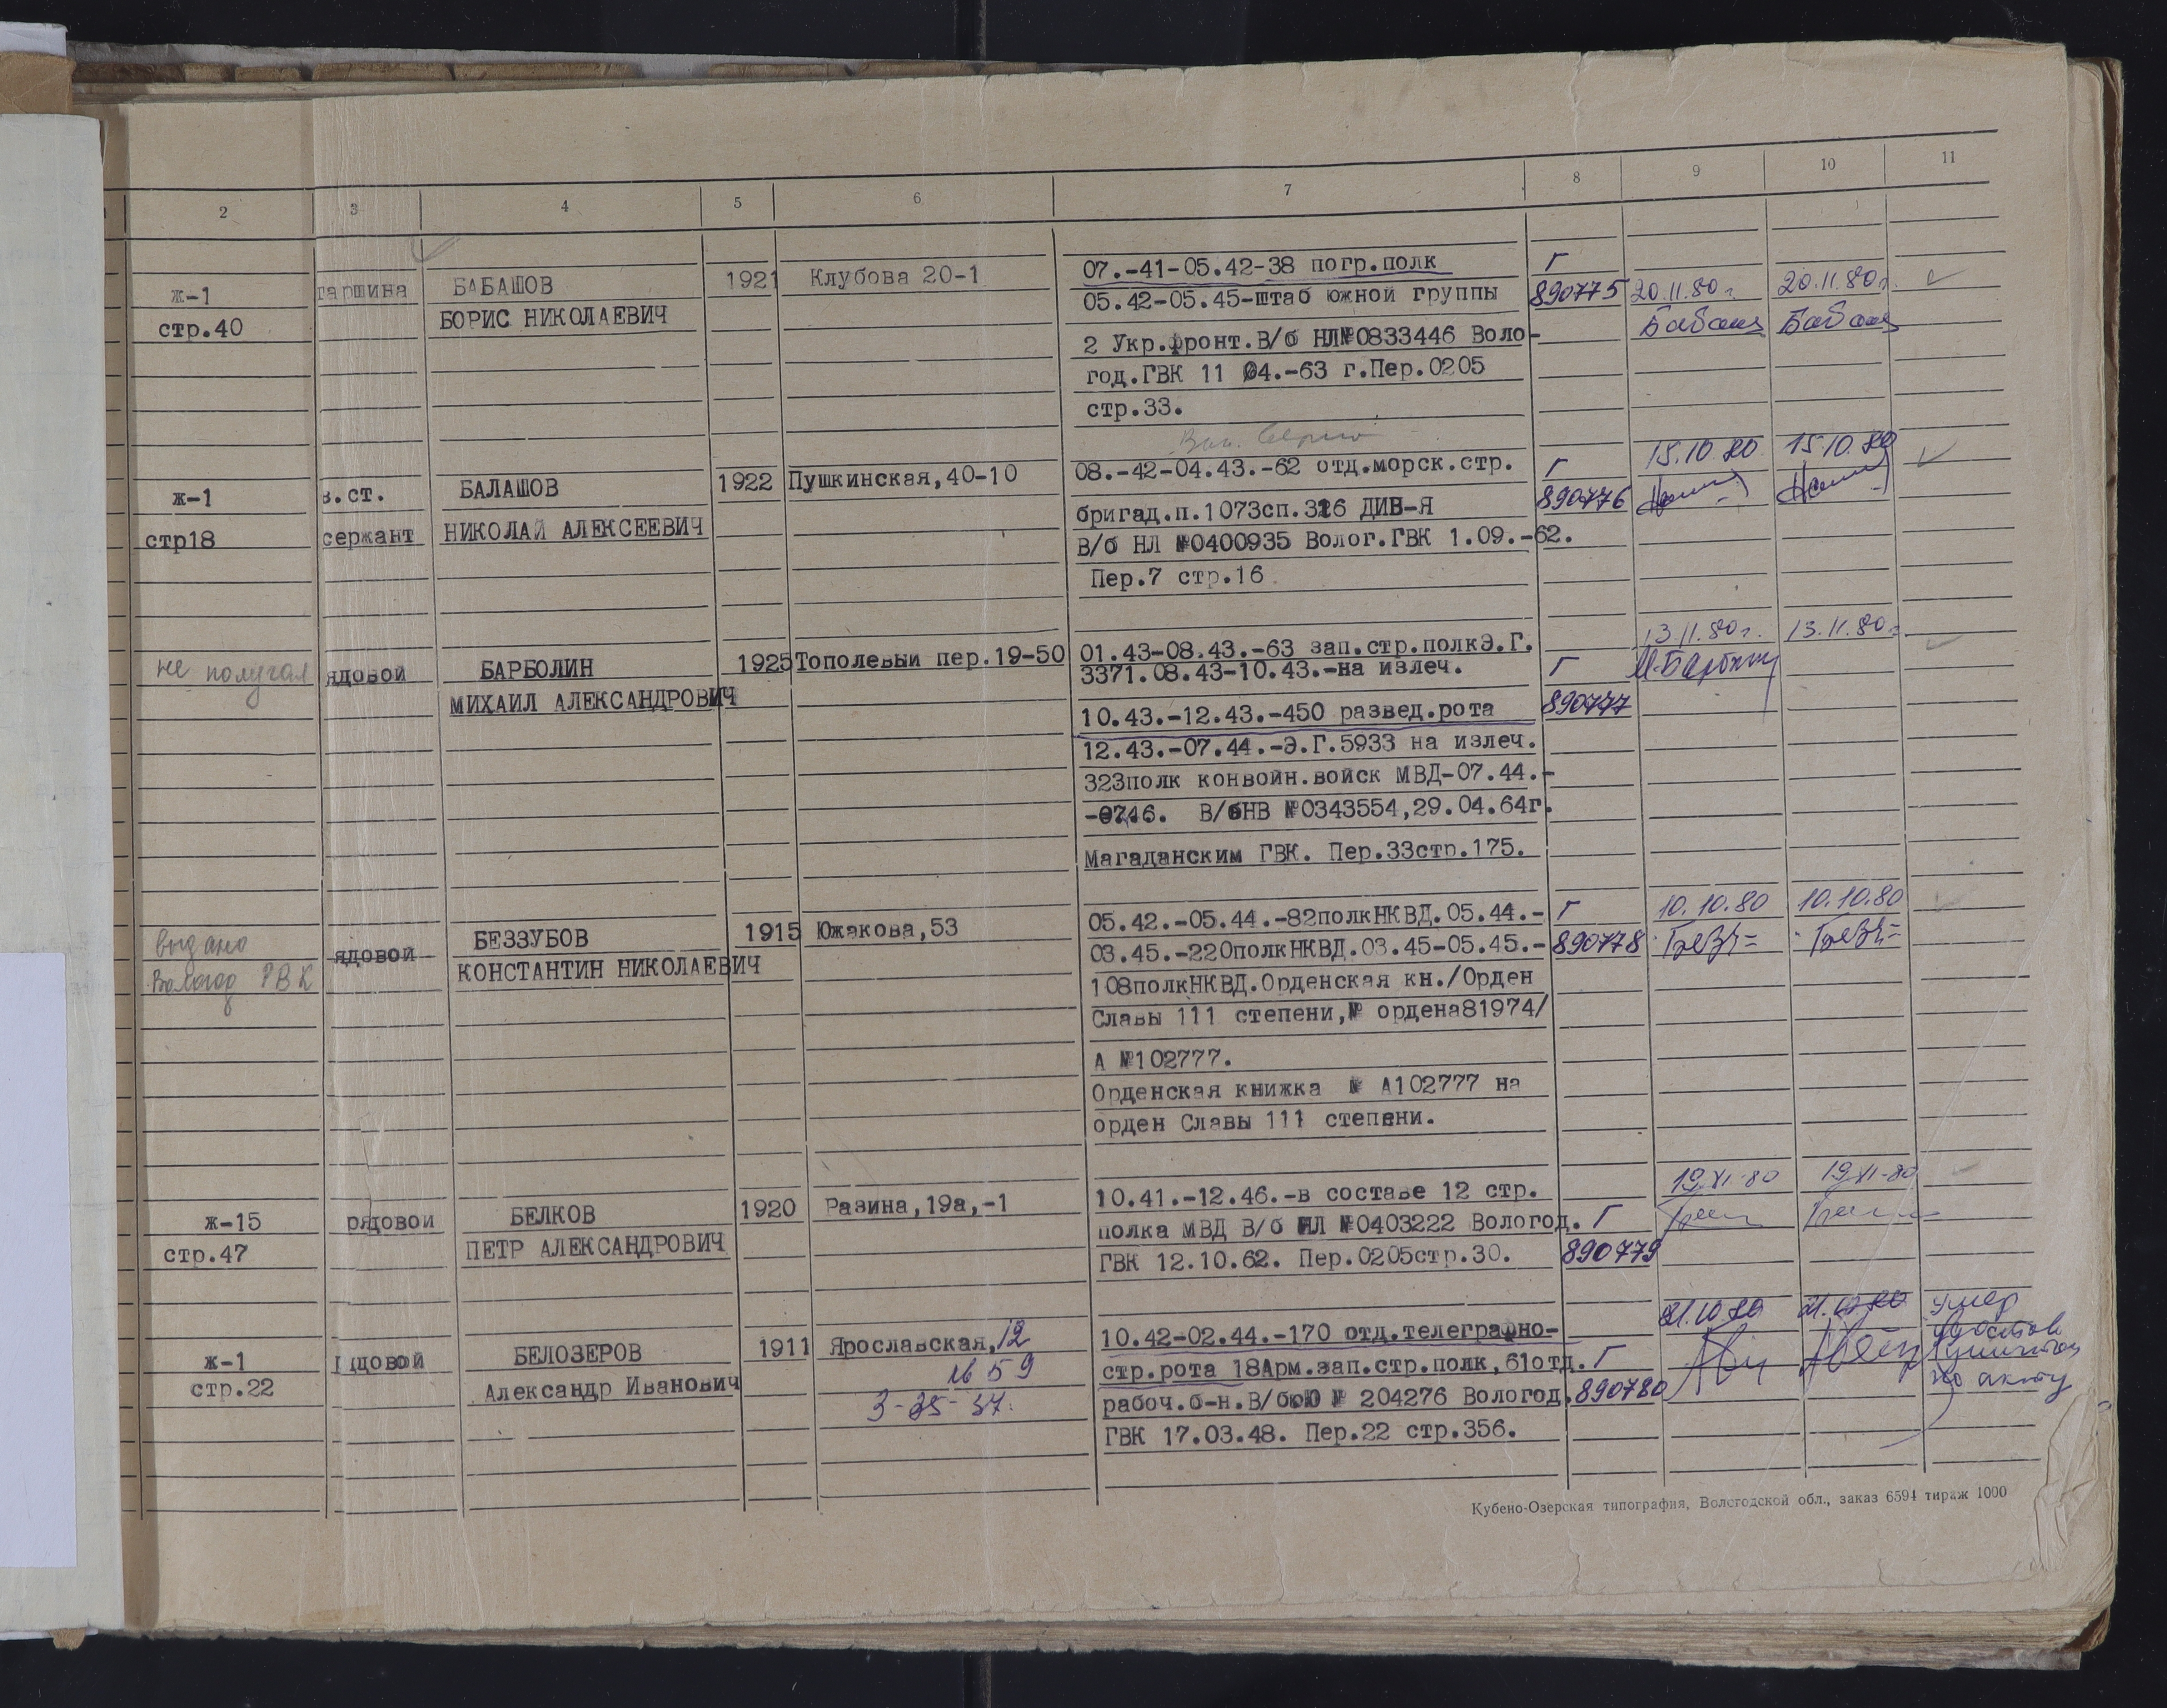 2 3 4 5 6 7 8 9 10 11
ж-1 таршина БАБАШОВ 1921 Клубова 20-1 07.-41-05.42-38 погр.полк Г
стр.40 БОРИС НИКОЛАЕВИЧ 05.42-05.45-штаб южной группы 890775 20.11.80г. 20.11.80г.
2 Укр.фронт.В/б НЛ№0833446 Воло-
год.ГВК 11 04.-63 г.Пер.0205
стр.33.
ж-1 в.ст. БАЛАШОВ 1922 Пушкинская,40-10 08.-42-04.43.-62 отд.морск.стр. Г 15.10.80 15.10.80
стр18 сержант НИКОЛАЙ АЛЕКСЕЕВИЧ бригад.п.1073сп.316 ДИВ-Я 890776
В/б НЛ №0400935 Волог.ГВК 1.09.-62.
Пер.7 стр.16
не получал ядовой БАРБОЛИН 1925 Тополевый пер.19-50 01.43-08.43.-63 зап.стр.полкЭ.Г. 13.11.80г. 13.11.80г.
МИХАИЛ АЛЕКСАНДРОВИЧ 3371.08.43-10.43.-на излеч. Г
10.43.-12.43.-450 развед.рота 890777
12.43.-07.44.-Э.Г.5933 на излеч.
323полк конвойн.войск МВД-07.44.-
-0746. В/бНВ №0343554,29.04.64г.
Магаданским ГВК. Пер.33стр.175.
выдано ядовой БЕЗЗУБОВ 1915 Южакова,53 05.42.-05.44.-82полкНКВД.05.44.- Г 10.10.80 10.10.80
Вологод РВК КОНСТАНТИН НИКОЛАЕВИЧ 03.45.-220полкНКВД.03.45-05.45.- 890778
108полкНКВД.Орденская кн./Орден
Славы 111 степени,№ ордена81974/
А №102777.
Орденская книжка № А102777 на
орден Славы 111 степени.
ж-15 рядовой БЕЛКОВ 1920 Разина,19а,-1 10.41.-12.46.-в составе 12 стр. 19.XI-80 19.XI-80
стр.47 ПЕТР АЛЕКСАНДРОВИЧ полка МВД В/б НЛ №0403222 Вологод. Г
ГВК 12.10.62. Пер.0205стр.30. 890779
ж-1 ядовой БЕЛОЗЕРОВ 1911 Ярославская,12 10.42-02.44.-170 отд.телеграфно- 21.10.80 21.10.80 умер
стр.22 Александр Иванович стр.рота 18Арм.зап.стр.полк,61отд. Г
3-35-37. рабоч.б-н.В/бЮ № 204276 Вологод. 890780 по акту
ГВК 17.03.48. Пер.22 стр.356.
Кубено-Озерская типография, Вологодской обл., заказ 6594 тираж 1000